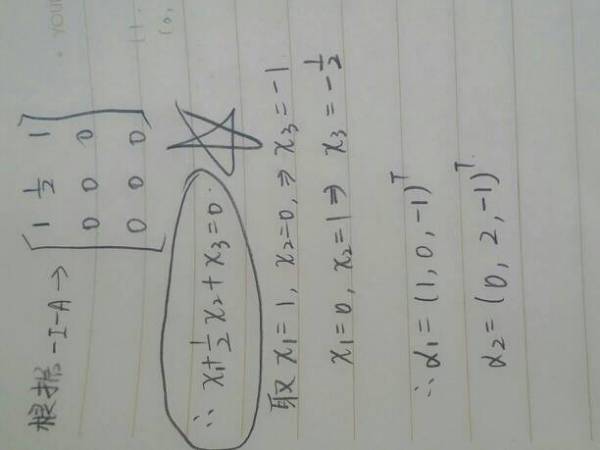 根据 -I-A → [1 1/2 1
0 0 0
0 0 0]
∴ x₁+1/2 x₂+x₃=0.
取 x₁=1, x₂=0, ⇒ x₃=-1
x₁=0, x₂=1 ⇒ x₃=-1/2
∴ α₁=(1, 0, -1)ᵀ
α₂=(0, 2, -1)ᵀ.